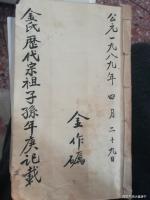 公元一九八九年 四月二十九日
金作礪
金氏歷代宗祖子孫年庚记載